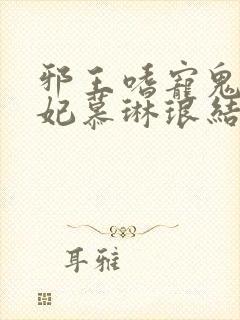 邪王嗜宠鬼
妃慕琳琅结
耳雅